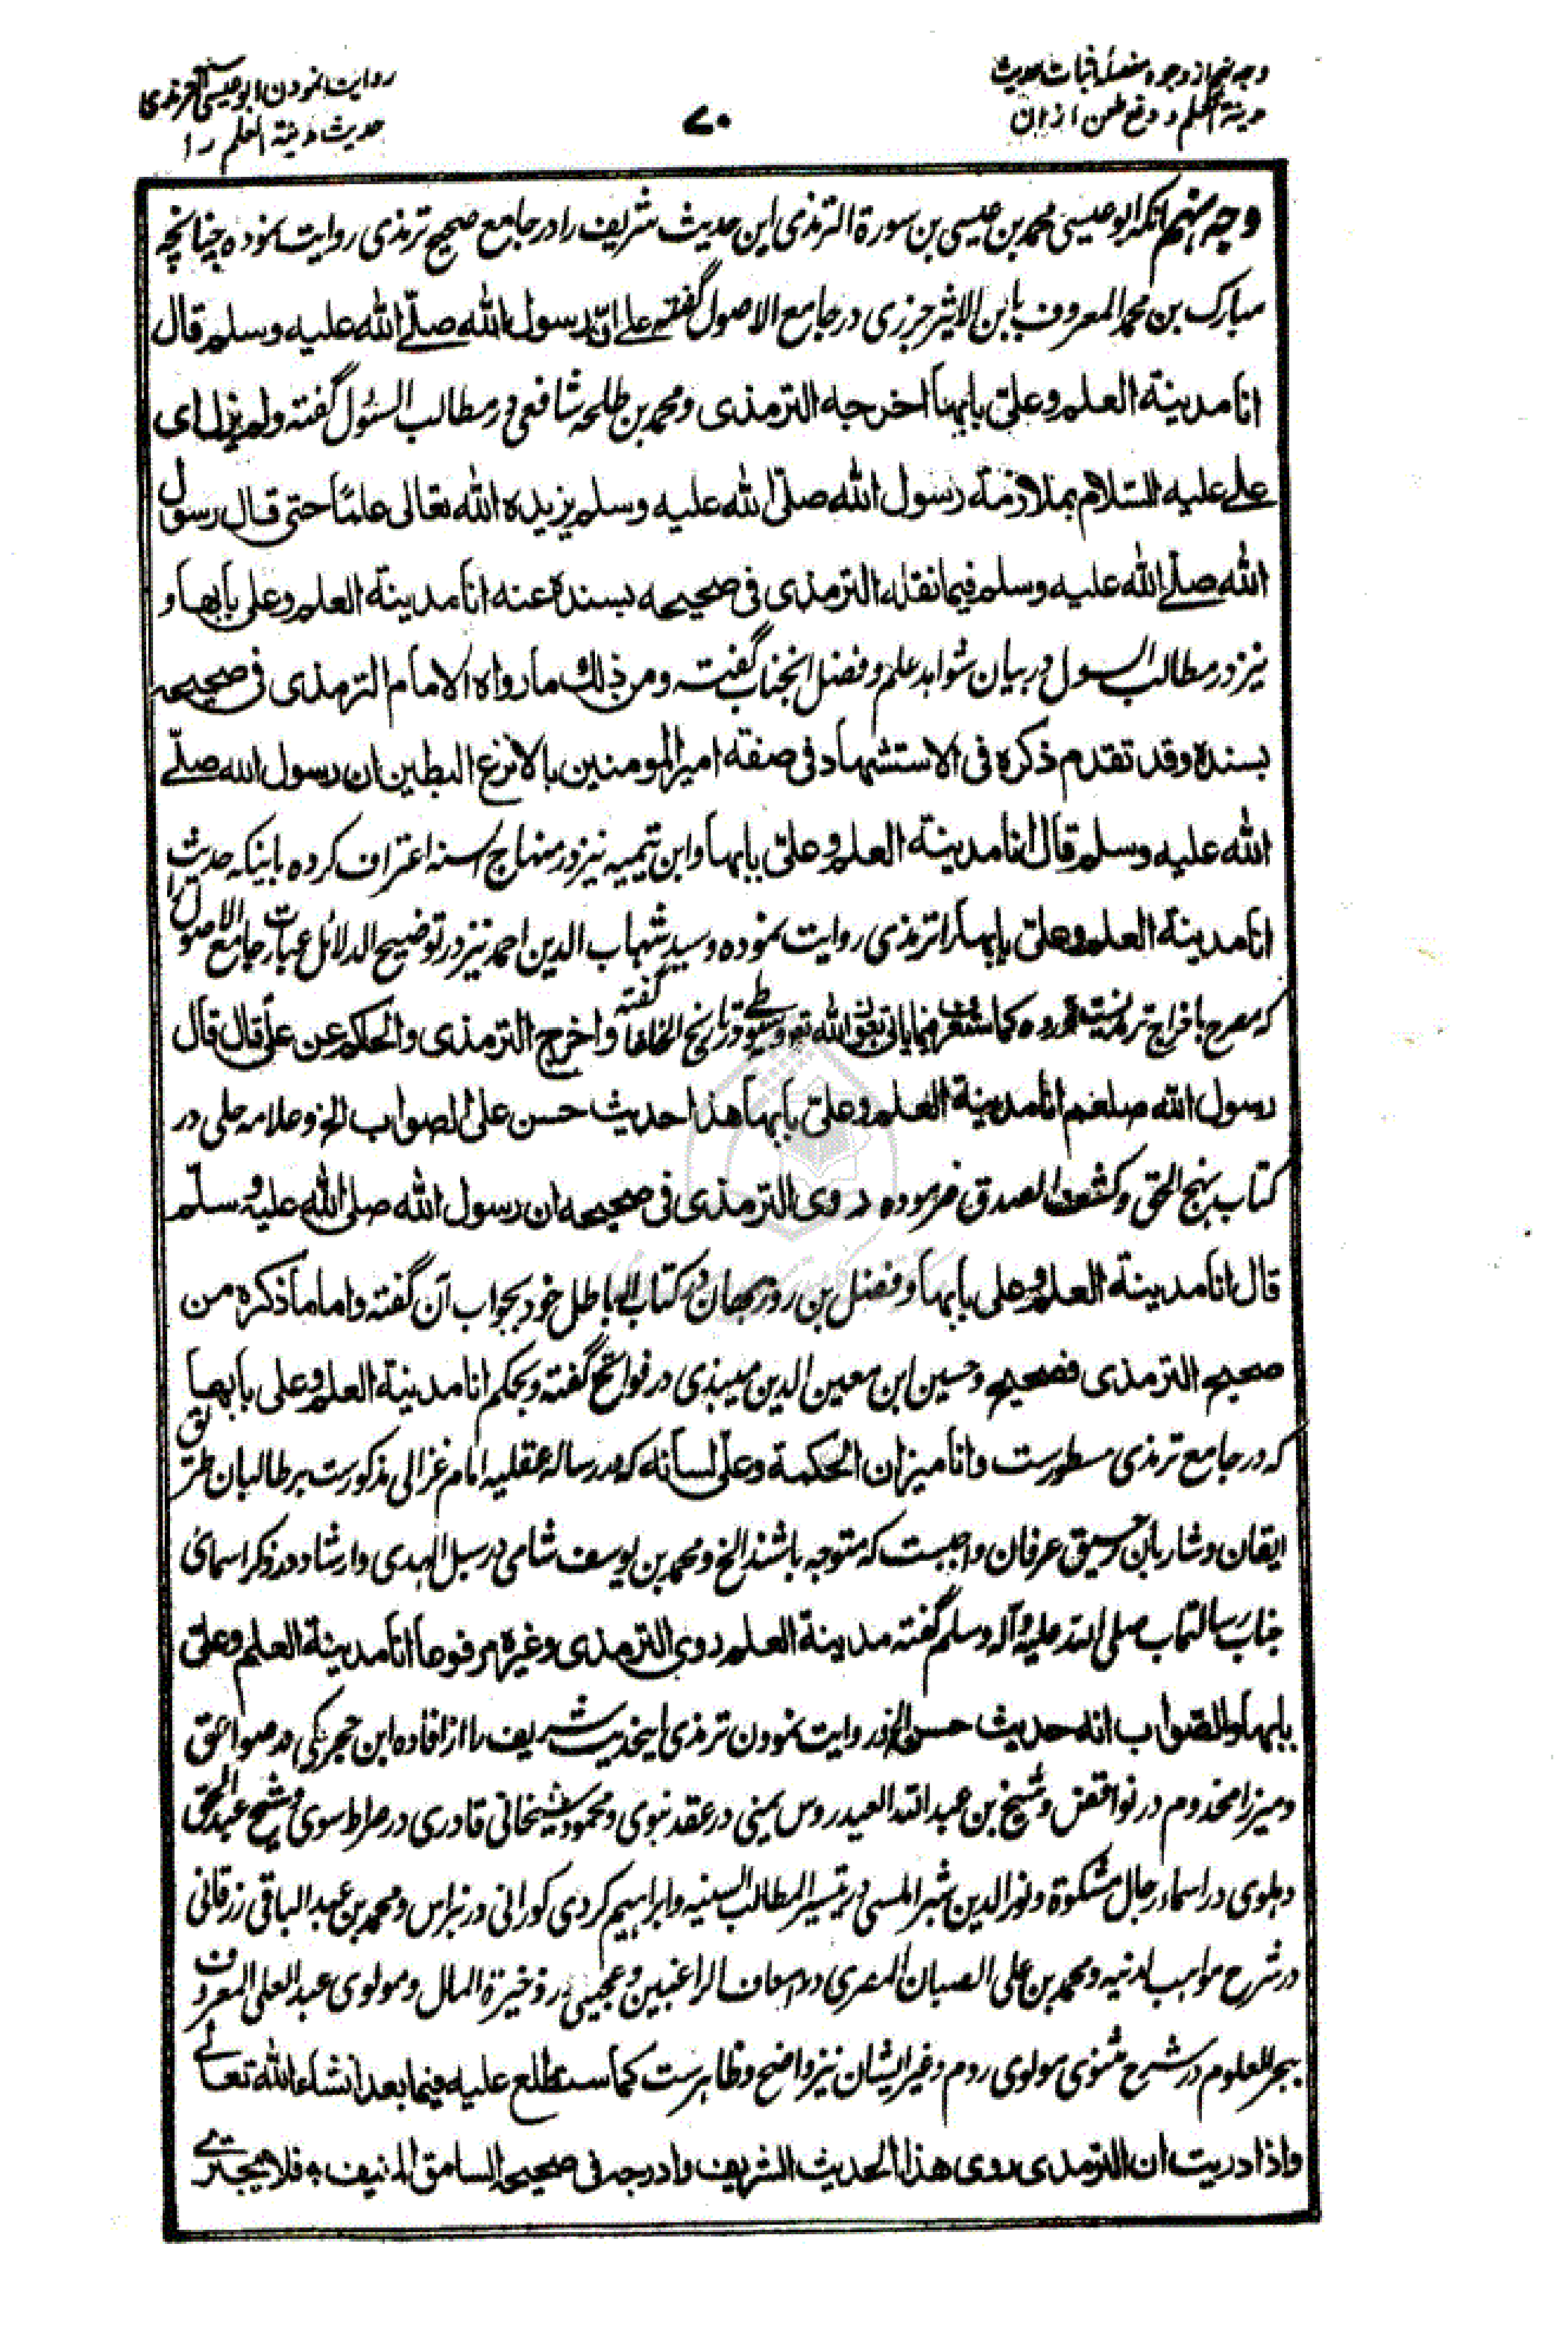 وجه نهم از وجوه مفصله اثبات حدیث
مدینة العلم و دفع طعن ازان
۷۰
روایت نمودن ابو عیسی الترمذی
حدیث مدینة العلم را
وجه نهم آنکه ابو عیسی محمد بن عیسی بن سورة الترمذی این حدیث شریف را در جامع صحیح ترمذی روایت نموده چنانچه
مبارک بن محمد المعروف بابن الاثیر جزری در جامع الاصول گفته علی ان رسول الله صلّی الله علیه وسلم قال
انا مدینة العلم وعلیّ بابها اخرجه الترمذی و محمد بن طلحه شافعی در مطالب السئول گفته ولم یزل ای
علی علیه السّلام بملازمة رسول الله صلّی الله علیه وسلم یزیده الله تعالی علمًا حتی قال رسول
الله صلّی الله علیه وسلم فیما نقله الترمذی فی صحیحه بسنده عنه انا مدینة العلم وعلی بابها و
نیز در مطالب السول در بیان شواهد علم و فضل آنجناب گفته ومن ذلک ما رواه الامام الترمذی فی صحیحه
بسنده وقد تقدم ذکره فی الاستشهاد فی صفة امیر المومنین بالانزع البطین ان رسول الله صلّی
الله علیه وسلم قال انا مدینة العلم وعلیّ بابها و ابن تیمیه نیز در منهاج السنه اعتراف کرده باینکه حدیث
انا مدینة العلم وعلیّ بابها را ترمذی روایت نموده و سید شهاب الدین احمد نیز در توضیح الدلائل عبارت جامع الاصول را
که مصرح باخراج ترمذیست آورده کما ستعرف فیما یاتی بتوفیق الله تع و سیوطی در تاریخ الخلفا گفته واخرج الترمذی والحاکم عن علی قال قال
رسول الله صلعم انا مدینة العلم وعلیّ بابها هذا حدیث حسن علی الصواب الخ و علامه حلی در
کتاب نهج الحق و کشف الصدق فرموده روی الترمذی فی صحیحه ان رسول الله صلی الله علیه وسلّم
قال انا مدینة العلم وعلی بابها و فضل بن روزبهان در کتاب الباطل خود بجواب آن گفته واما ما ذکره من
صحیح الترمذی فصحیح و حسین ابن معین الدین میبذی در فواتح گفته و بحکم انا مدینة العلم وعلی بابها
که در جامع ترمذی مسطورست و انا میزان الحکمة وعلی لسانه که در رساله عقلیه امام غزالی مذکورست بر طالبان طریق
ایقان و شاربان رحیق عرفان واجبست که متوجه باشند الخ و محمد بن یوسف شامی در سبل الهدی و ارشاد در ذکر اسمای
جناب رسالتمآب صلی الله علیه وآله وسلم گفته مدینة العلم روی الترمذی وغیره مرفوعا انا مدینة العلم وعلیّ
بابها والصّواب انه حدیث حسن الخ و روایت نمودن ترمذی اینحدیث شریف را از افاده ابن حجر مکی در صواعق
و میرزا مخدوم در نواقض و شیخ بن عبد الله العیدروس یمنی در عقد نبوی و محمود شیخانی قادری در صراط سوی و شیخ عبد الحق
دهلوی در اسماء رجال مشکوة و نور الدین شبراملسی در تیسیر المطالب السنیه و ابراهیم کردی کورانی در نبراس و محمد بن عبد الباقی زرقانی
در شرح مواهب لدنیه و محمد بن علی الصبان المصری در اسعاف الراغبین و عجیلی در ذخیرة المال و مولوی عبد العلی المعروف
ببحر العلوم در شرح مثنوی مولوی روم و غیر ایشان نیز واضح و ظاهرست کما ستطلع علیه فیما بعد انشاء الله تعالی
واذا دریت ان الترمذی روی هذا الحدیث الشریف وادرجه فی صحیحه السامق المنیف ٭ فلا یجتری